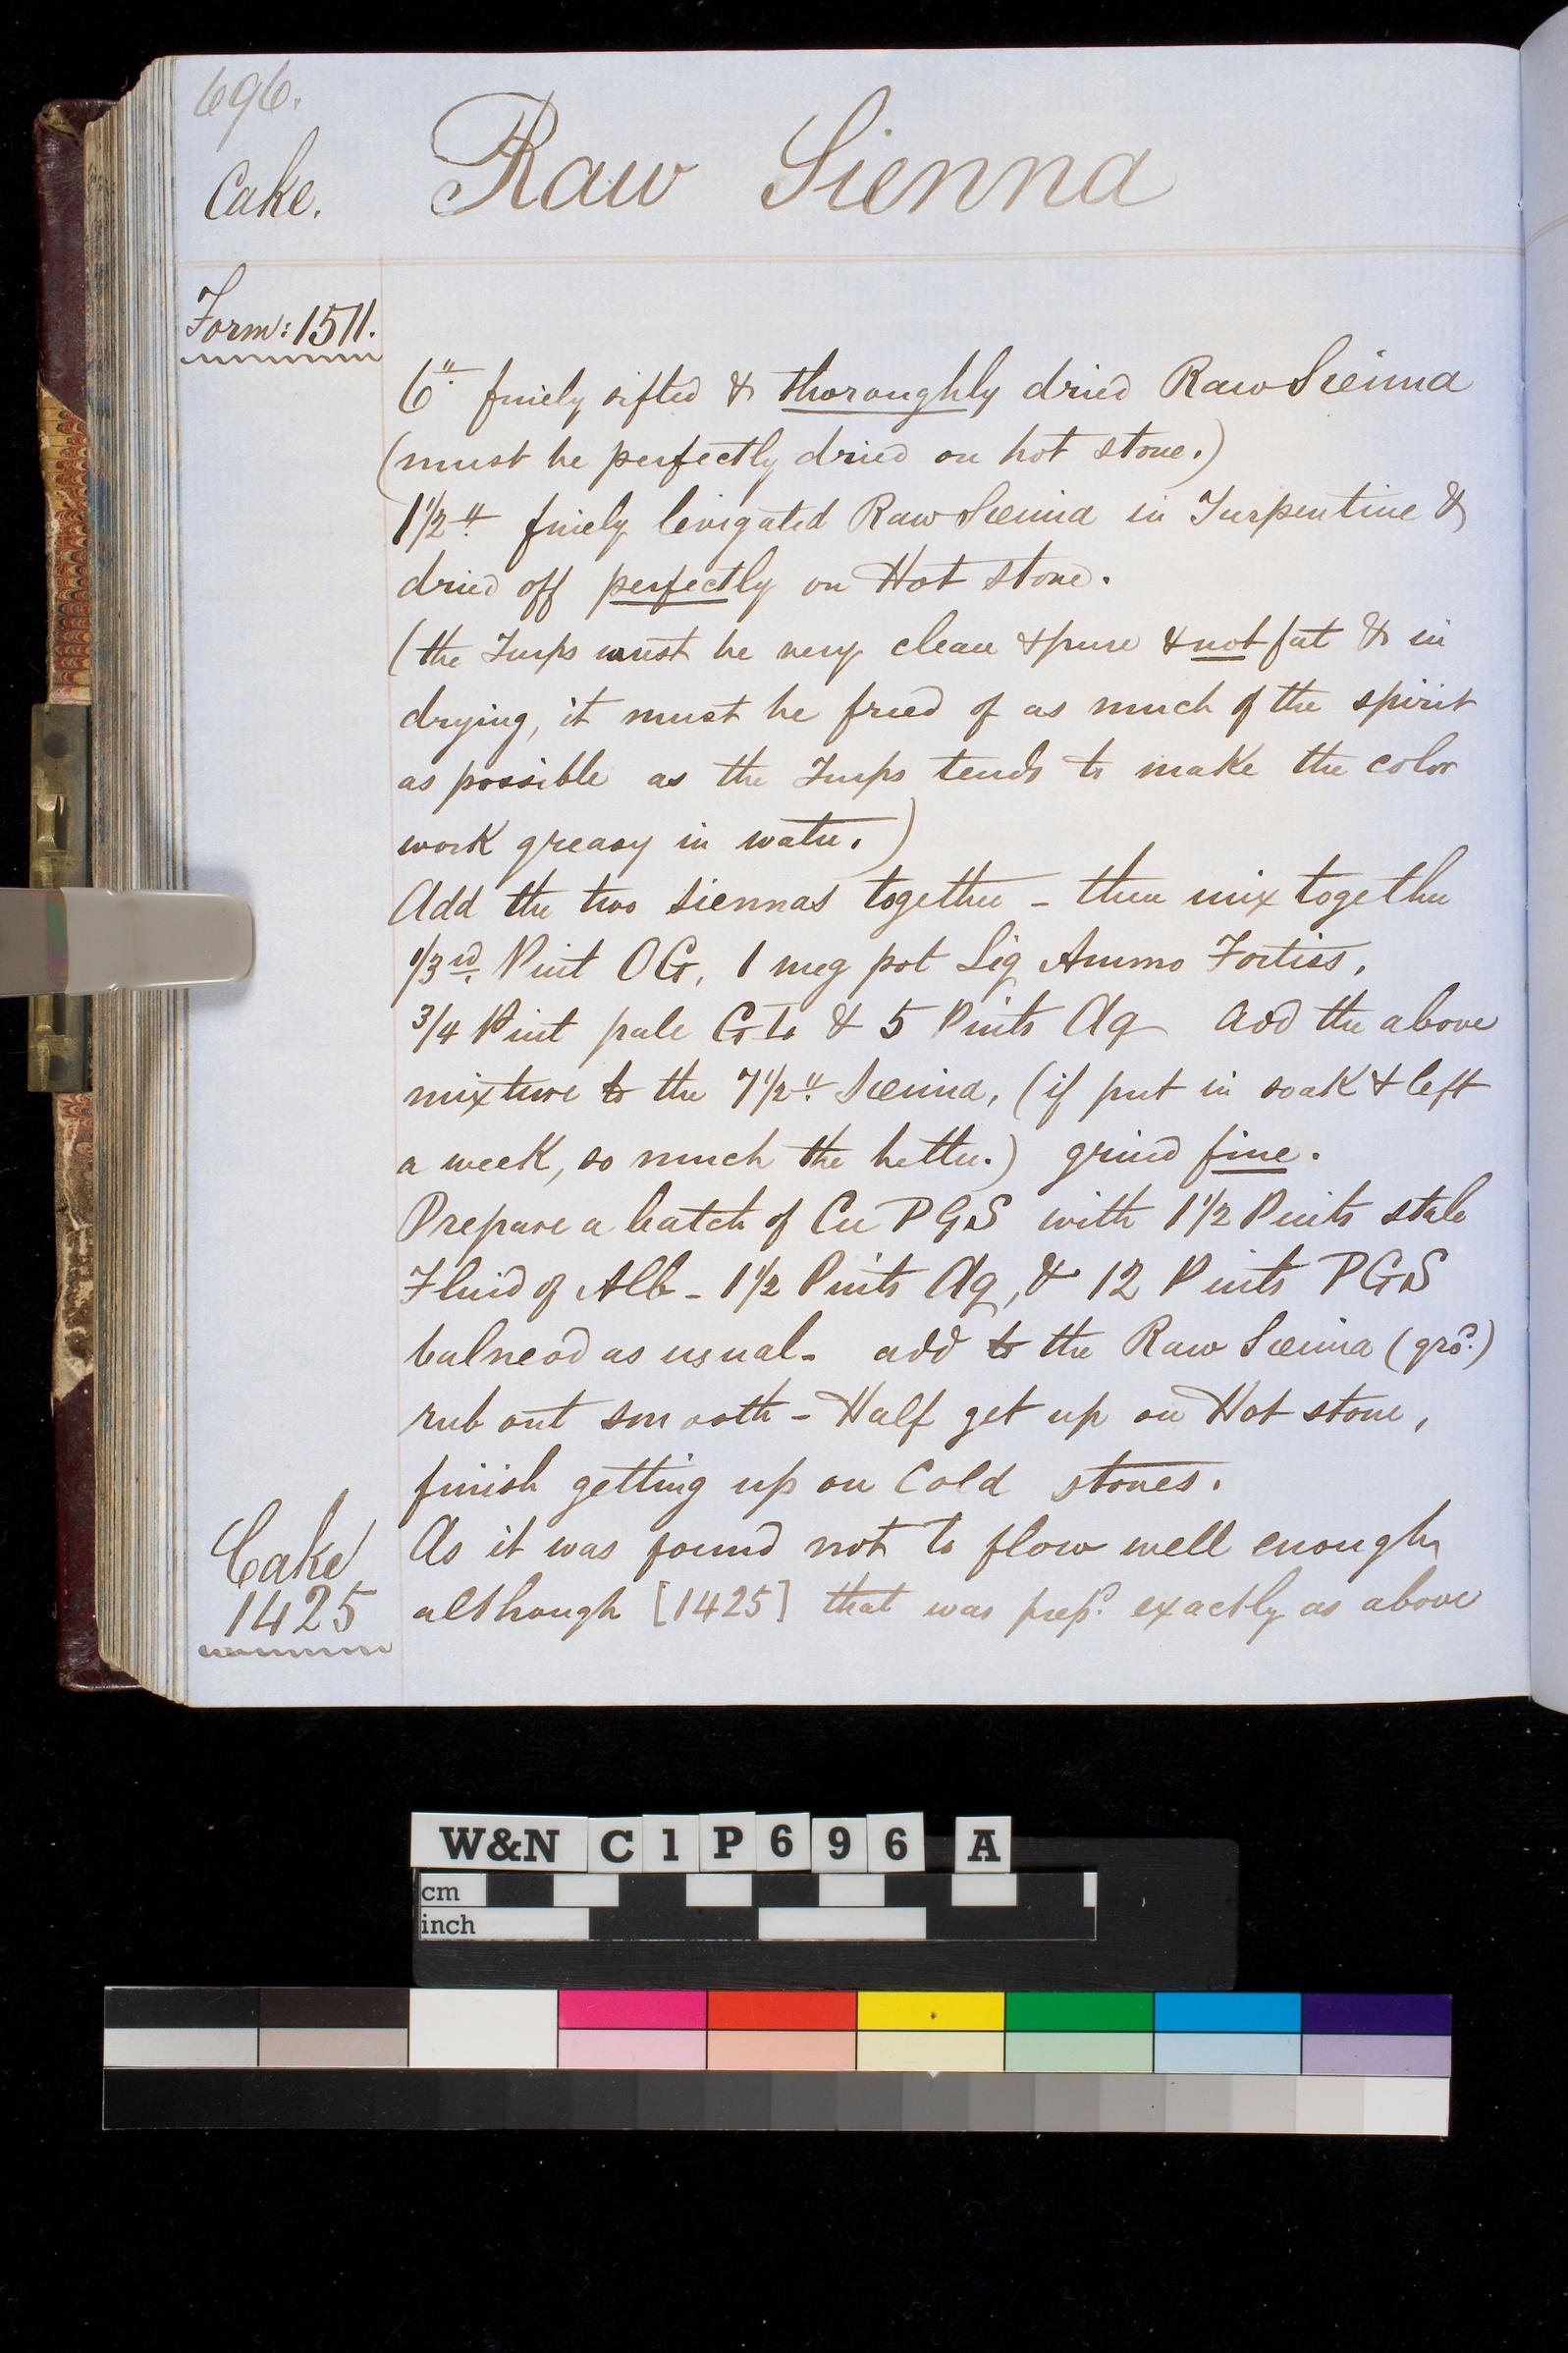 696.
Cake. Raw Sienna
Form: 1511.
6" finely sifted & thoroughly dried Raw Sienna
(must be perfectly dried on hot stone.)
1½" finely levigated Raw Sienna in Turpentine &
dried off perfectly on Hot Stone.
(the Turps must be very clean & pure & not fat & in
drying, it must be freed of as much of the spirit
as possible as the Turps tends to make the color
work greasy in water.)
Add the two Siennas together - then mix together
1/3rd. Pint OG, 1 meg pot Liq Ammo Fortiss,
3/4 Pint pale GTo & 5 Pints Aq add the above
mixture to the 7½" Sienna, (if put in soak & left
a week, so much the better.) grind fine.
Prepare a batch of Cu PGS with 1½ Pints stale
Fluid of Alb - 1½ Pints Aq, & 12 Pints PGS
balneod as usual - add to the Raw Sienna (grd.)
rub out smooth - Half get up on Hot stone,
finish getting up on Cold stones.
Cake As it was found not to flow well enough
1425 although [1425] that was prepd. exactly as above
W&N C1P696 A
cm
inch